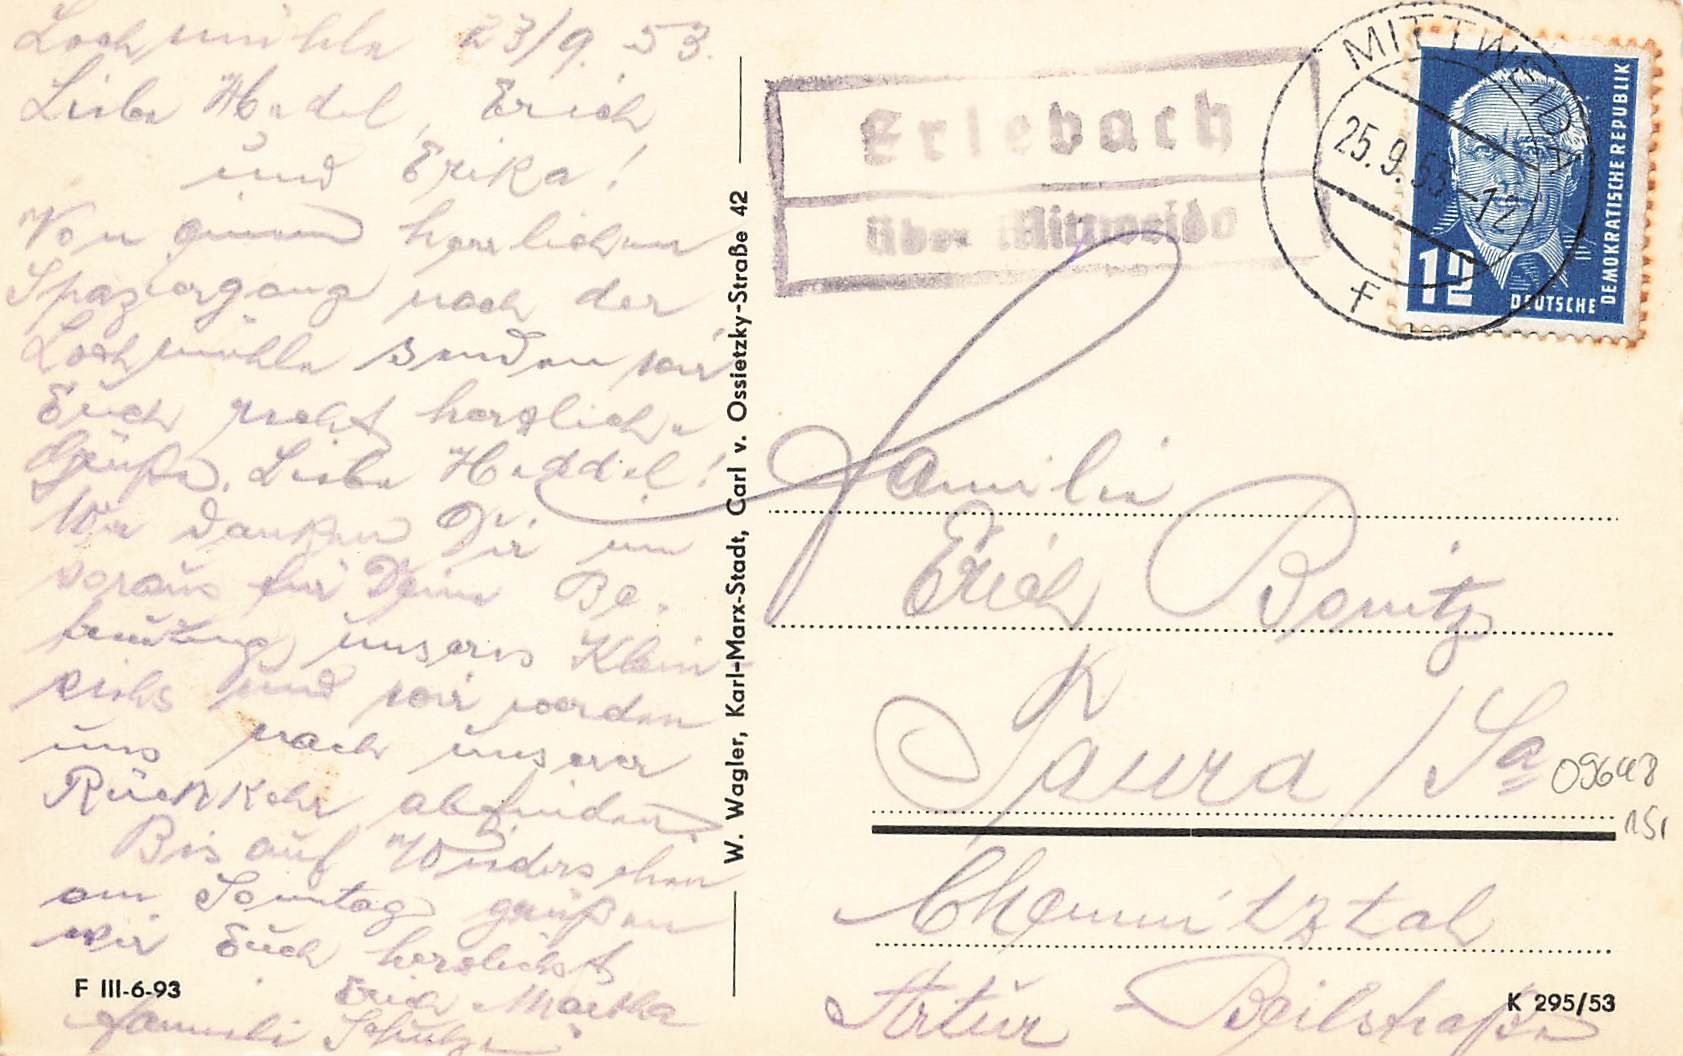 Lochmühle 23/9. 53.
Liebe Hedel, Erich
und Erika!
Von einem herrlichen
Spaziergang nach der
Lochmühle senden wir
Euch recht herzliche
Grüße. Liebe Heddel!
Wir danken Dir im
voraus für Deine Be-
treuung unseres Klein-
viehs und wir werden
uns nach unserer
Rückkehr abfinden.
Bis auf Wiedersehen
am Sonntag grüßen
wir Euch herzlichst
Erich Martha
Hanneli Schulze
F III-6-93
W. Wagler, Karl-Marx-Stadt, Carl v. Ossietzky-Straße 42
Erlebach
über Mittweida
MITTWEIDA
25.9.53.-12
F
12
DEUTSCHE
DEMOKRATISCHE REPUBLIK
Familie
Erich Bonitz
Taura / Sa
09648
Chemnitztal
K 295/53
Artur Beilstraße